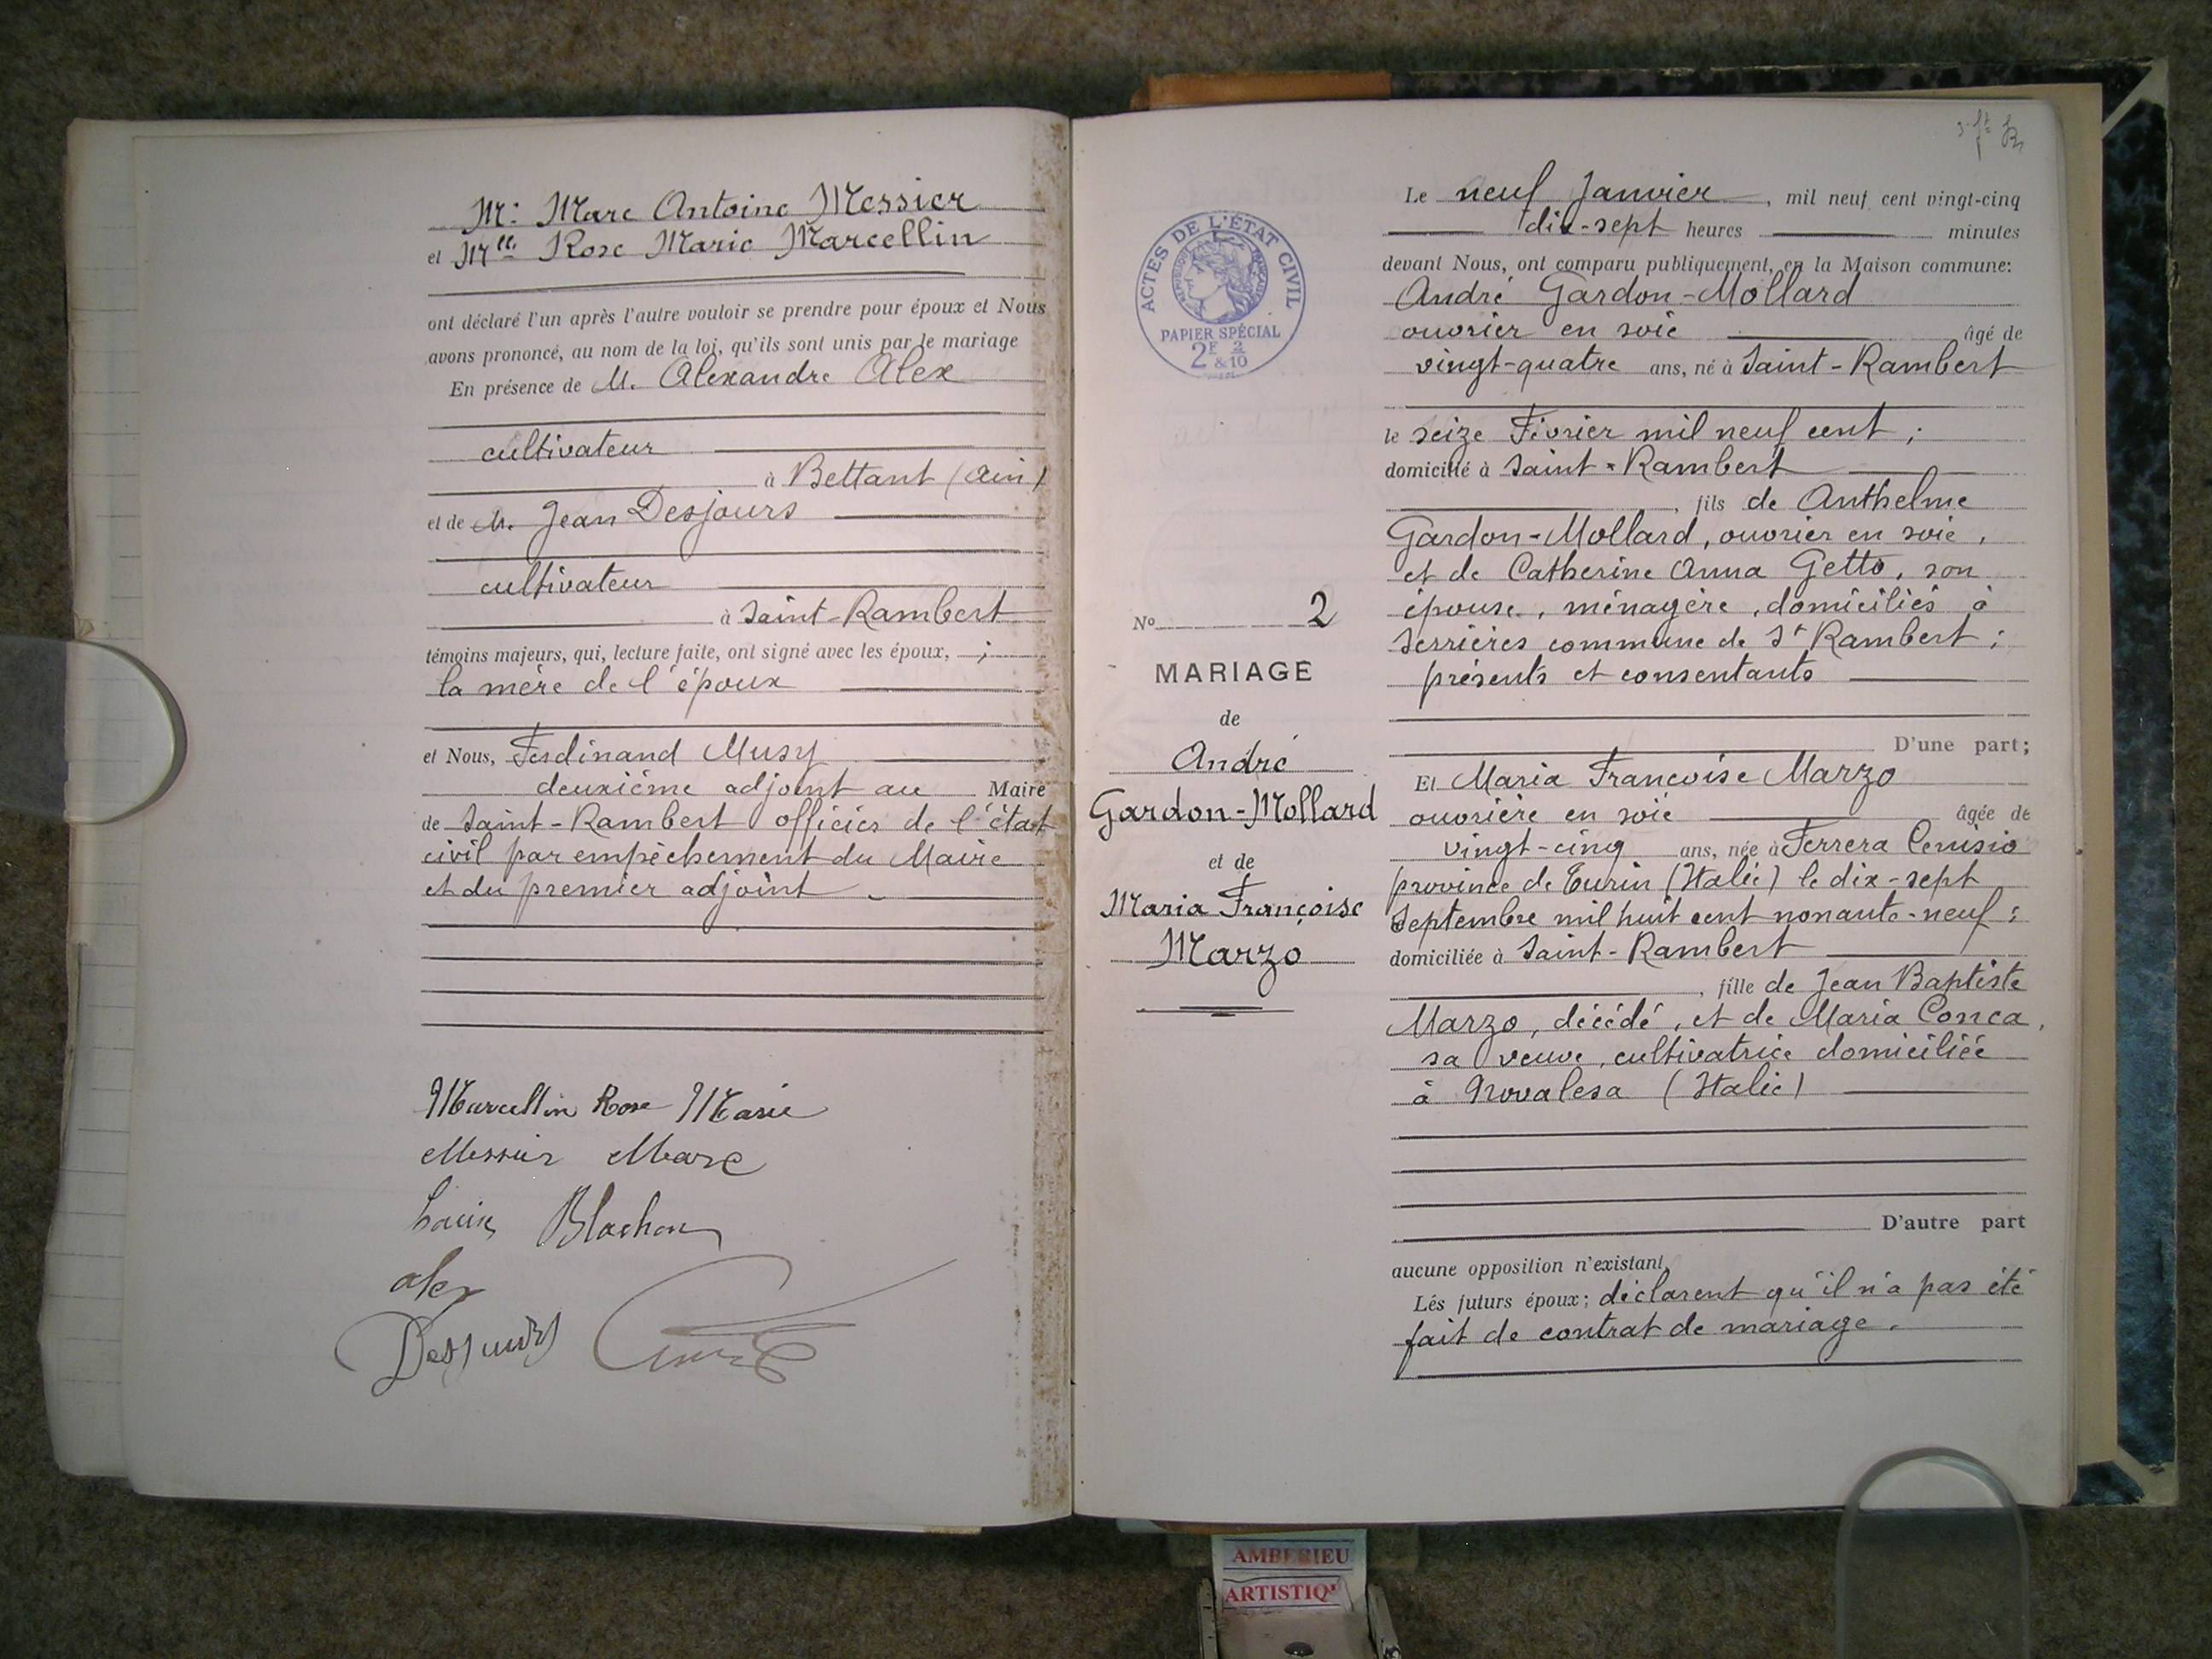 Mr. Marc Antoine Messier
et Mlle. Rose Marie Marcellin
ont déclaré l'un après l'autre vouloir se prendre pour époux et Nous
avons prononcé, au nom de la loi, qu'ils sont unis par le mariage
En présence de M. Alexandre Alex
cultivateur
à Bettant (Ain)
et de M. Jean Desjours
cultivateur
à Saint-Rambert
témoins majeurs, qui, lecture faite, ont signé avec les époux, ;
la mère de l'époux
et Nous, Ferdinand Musy
deuxième adjoint au Maire
de Saint-Rambert officier de l'état
civil par empêchement du Maire
et du premier adjoint.
Marcellin Rose Marie
Messier Marc
Blachon
Alex
Desjours
ACTES DE L'ÉTAT CIVIL
PAPIER SPÉCIAL
2F 2/10
&
No 2
MARIAGE
de
André
Gardon-Mollard
et de
Maria Françoise
Marzo
Le neuf Janvier, mil neuf cent vingt-cinq
dix-sept heures minutes
devant Nous, ont comparu publiquement, en la Maison commune:
André Gardon-Mollard
ouvrier en soie âgé de
vingt-quatre ans, né à Saint-Rambert
le seize Février mil neuf cent;
domicilié à Saint-Rambert
, fils de Anthelme
Gardon-Mollard, ouvrier en soie,
et de Catherine Anna Getto, son
épouse, ménagère, domiciliés à
Serrières commune de St Rambert;
présents et consentants
D'une part;
Et Maria Francoise Marzo
ouvrière en soie âgée de
vingt-cinq ans, née à Ferrera Cenisio
province de Turin (Italie) le dix-sept
Septembre mil huit cent nonante-neuf;
domiciliée à Saint-Rambert
, fille de Jean Baptiste
Marzo, décédé, et de Maria Conca,
sa veuve, cultivatrice domiciliée
à Novalesa (Italie)
D'autre part
aucune opposition n'existant,
Les futurs époux; déclarent qu'il n'a pas été
fait de contrat de mariage.
AMBERIEU
ARTISTIQ'